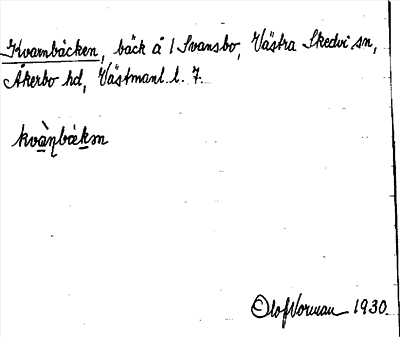 Kvarnbäcken, bäck å 1 Svansbo, Västra Skedvi sn,
Åkerbo hd, Västmanl. l. 7.
kvàṇbækən
Olof Norman 1930.